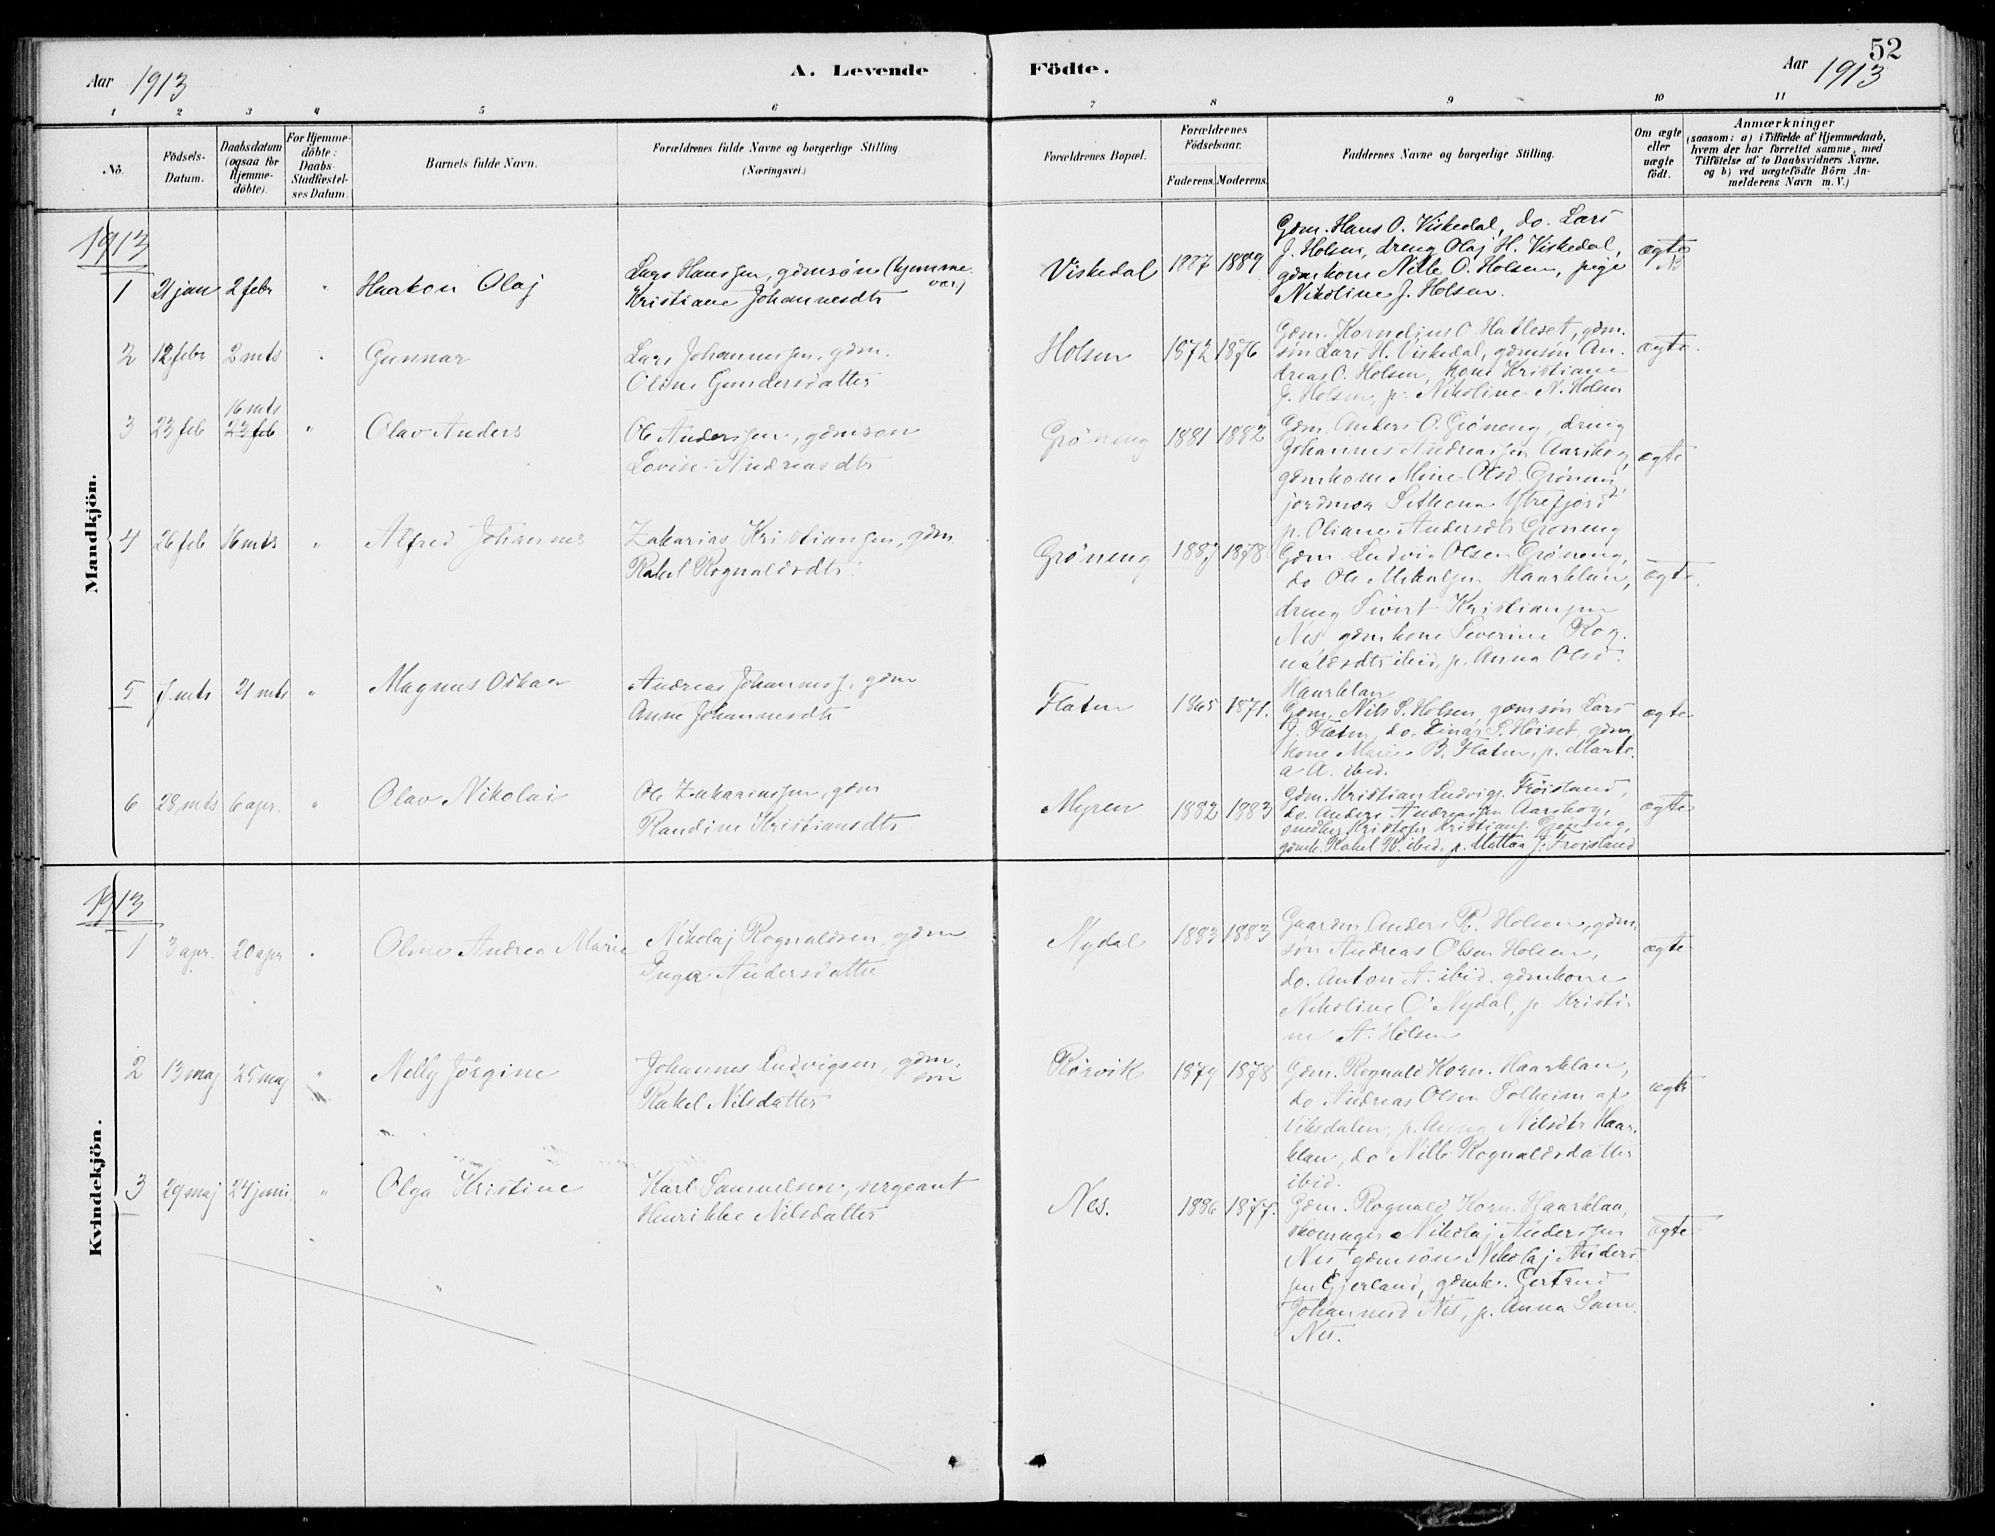 52
Aar 1913
A. Levende Födte.
Aar 1913
1 2 3 4 5 6 7 8 9 10 11
No.
Födsels-Datum.
Daabsdatum (ogsaa for Hjemme-döbte).
For Hjemme-döbte: Daabs-Stadfæstel-ses Datum.
Barnets fulde Navn.
Forældrenes fulde Navne og borgerlige Stilling
(Næringsvei.)
Forældrenes Bopæl.
Forældrenes Födselsaar.
Faderens. Moderens.
Faddernes Navne og borgerlige Stilling.
Om ægte eller uægte födt.
Anmærkninger
(saasom: a) i Tilfælde af Hjemmedaab,
hvem der har forrettet samme, med
Tilföielse af to Daabsvidners Navne,
og b) ved uægtefödte Börn An-
melderens Navn m. V.)
Mandkjön.
1913
1 21 jan 2 febr " Haakon Olaj
Lars Hanssen, gdmsøn (hjemme
vær)
Kristiane Johannesdtr
Viskedal 1887 1889
Gdm. Hans O. Viskedal, do. Lars
J. Holsen, dreng Olaj H. Viskedal,
gdmkone Nille O. Holsen, pige
Nikoline J. Holsen.
ægte
2 12 febr 2 mts " Gunnar
Lars Johannessen, gdm.
Oline Gundersdatter
Holsen 1872 1876
Gdm. Kornelius O. Hatleset, gdm.
søn Lars H. Viskedal, gdmsøn An-
dreas O. Holsen, kone Kristiane
J. Holsen, p. Nikoline N. Holsen
ægte.
3 23 feb 16 mts
23 feb " Olav Anders
Ole Anderssen, gdmsøn
Lovise Andreasdtr
Grøneng 1881 1882
Gdm. Anders O. Grøneng, dreng
Johannes Andreassen Aarskog,
gdmkone Mine Olsd. Grøneng,
jordmor Ytrefjord
p. Oliane Andersdtr Grøneng
ægte
4 26 feb 16 mts " Alfred Johannes
Zakarias Kristianssen, gdm
Rakel Rognaldsdtr.
Grøneng 1887 1878
Gdm. Ludvig Olsen Grøneng,
do Ole Mikalsen Haarklau,
dreng Sivert Kristianssen
Nes gdmkone Severine Rog-
naldsdtr ibid, p. Anna Olsd.
Haarklau
ægte.
5 7 mts 21 mts " Magnus Oskar
Andreas Johanness. gdm
Anne Johannesdtr
Flaten 1865 1871.
Gdm. Nils S. Holsen, gdmsøn Lars
J. Flaten, do. Einar S. Høiset, gdm
kone Marie B. Flaten, p. Marte
a A. ibid.
ægte
6 28 mts 6 apr. " Olav Nikolai
Ole Zakariassen, gdm
Randine Kristiansdtr
Myren 1882 1883
Gdm. Kristian Ludvigs. Frøisland,
do. Anders Andreassen Aarskog,
Kristofer Kristians. Grøneng,
gdmk. Rakel R. ibid, p. Mattea J. Frøisland
ægte
Kvindekjön.
1913
1 3 apr. 20 apr " Oline Andrea Marie
Nikolaj Rognaldsen, gdm
Inger Andersdatter
Nydal 1883 1883
Gaardm Anders R. Holsen, gdm
søn Andreas Olsen Holsen,
do. Anton A. ibid. gdmkone
Nikoline O. Nydal, p. Kristi-
ne A. Holsen
ægte
2 13 maj 25 maj " Nelly Jørgine
Johannes Ludvigsen, gdm
søn
Rakel Nilsdatter
Rørvik 1879 1878
Gdm. Rognald Korn. Haarklau,
do Andreas Olsen Solheim af
Viksdalen, p. Anna Nilsdtr Haar-
klau, do Nille Rognaldsdatter
ibid.
ægte
3 29 maj 24 juni " Olga Kristine
Karl Samuelsen, sergeant
Henrikke Nilsdatter
Nes. 1886 1877.
Gdm. Rognald Korn. Haarklau,
skomager Nikolaj Anderssen
Nes, gdmsøn Nikolaj Anders
sen Gjerland, gdmk. Gertrud
Johannesd Nes, p. Anna Sam.
Nes.
ægte